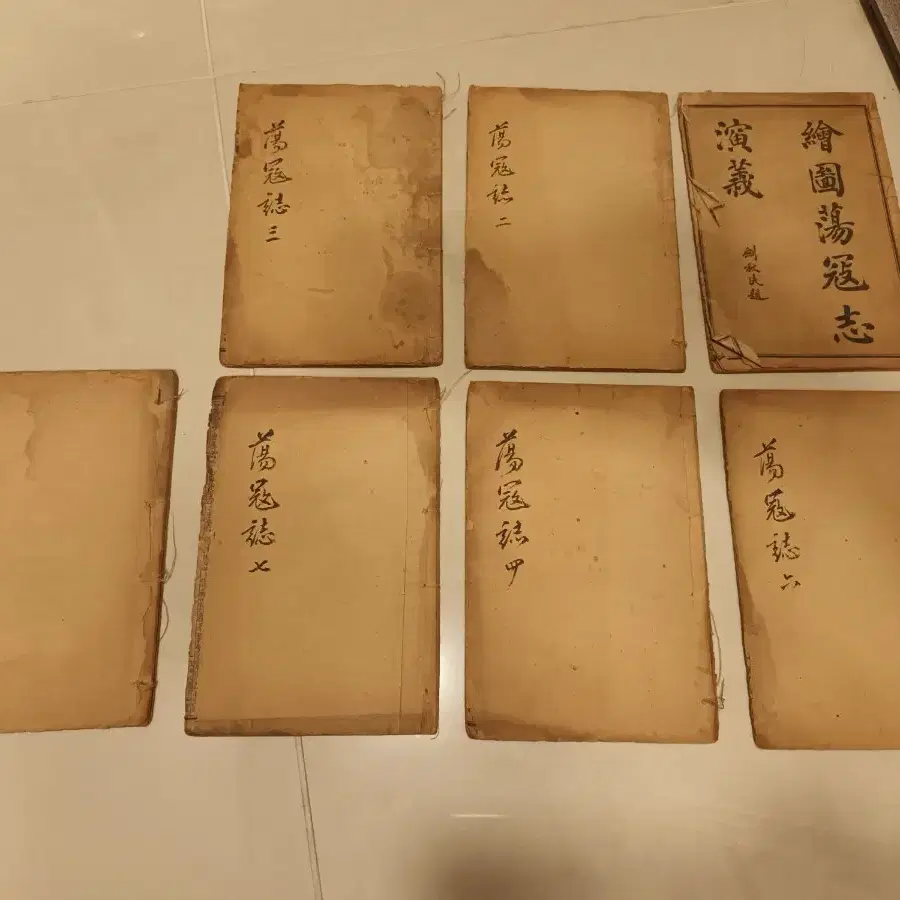 蕩寇誌三
蕩寇誌二
繪圖蕩寇志
演義
劍秋氏題
蕩寇誌七
蕩寇誌四
蕩寇誌六